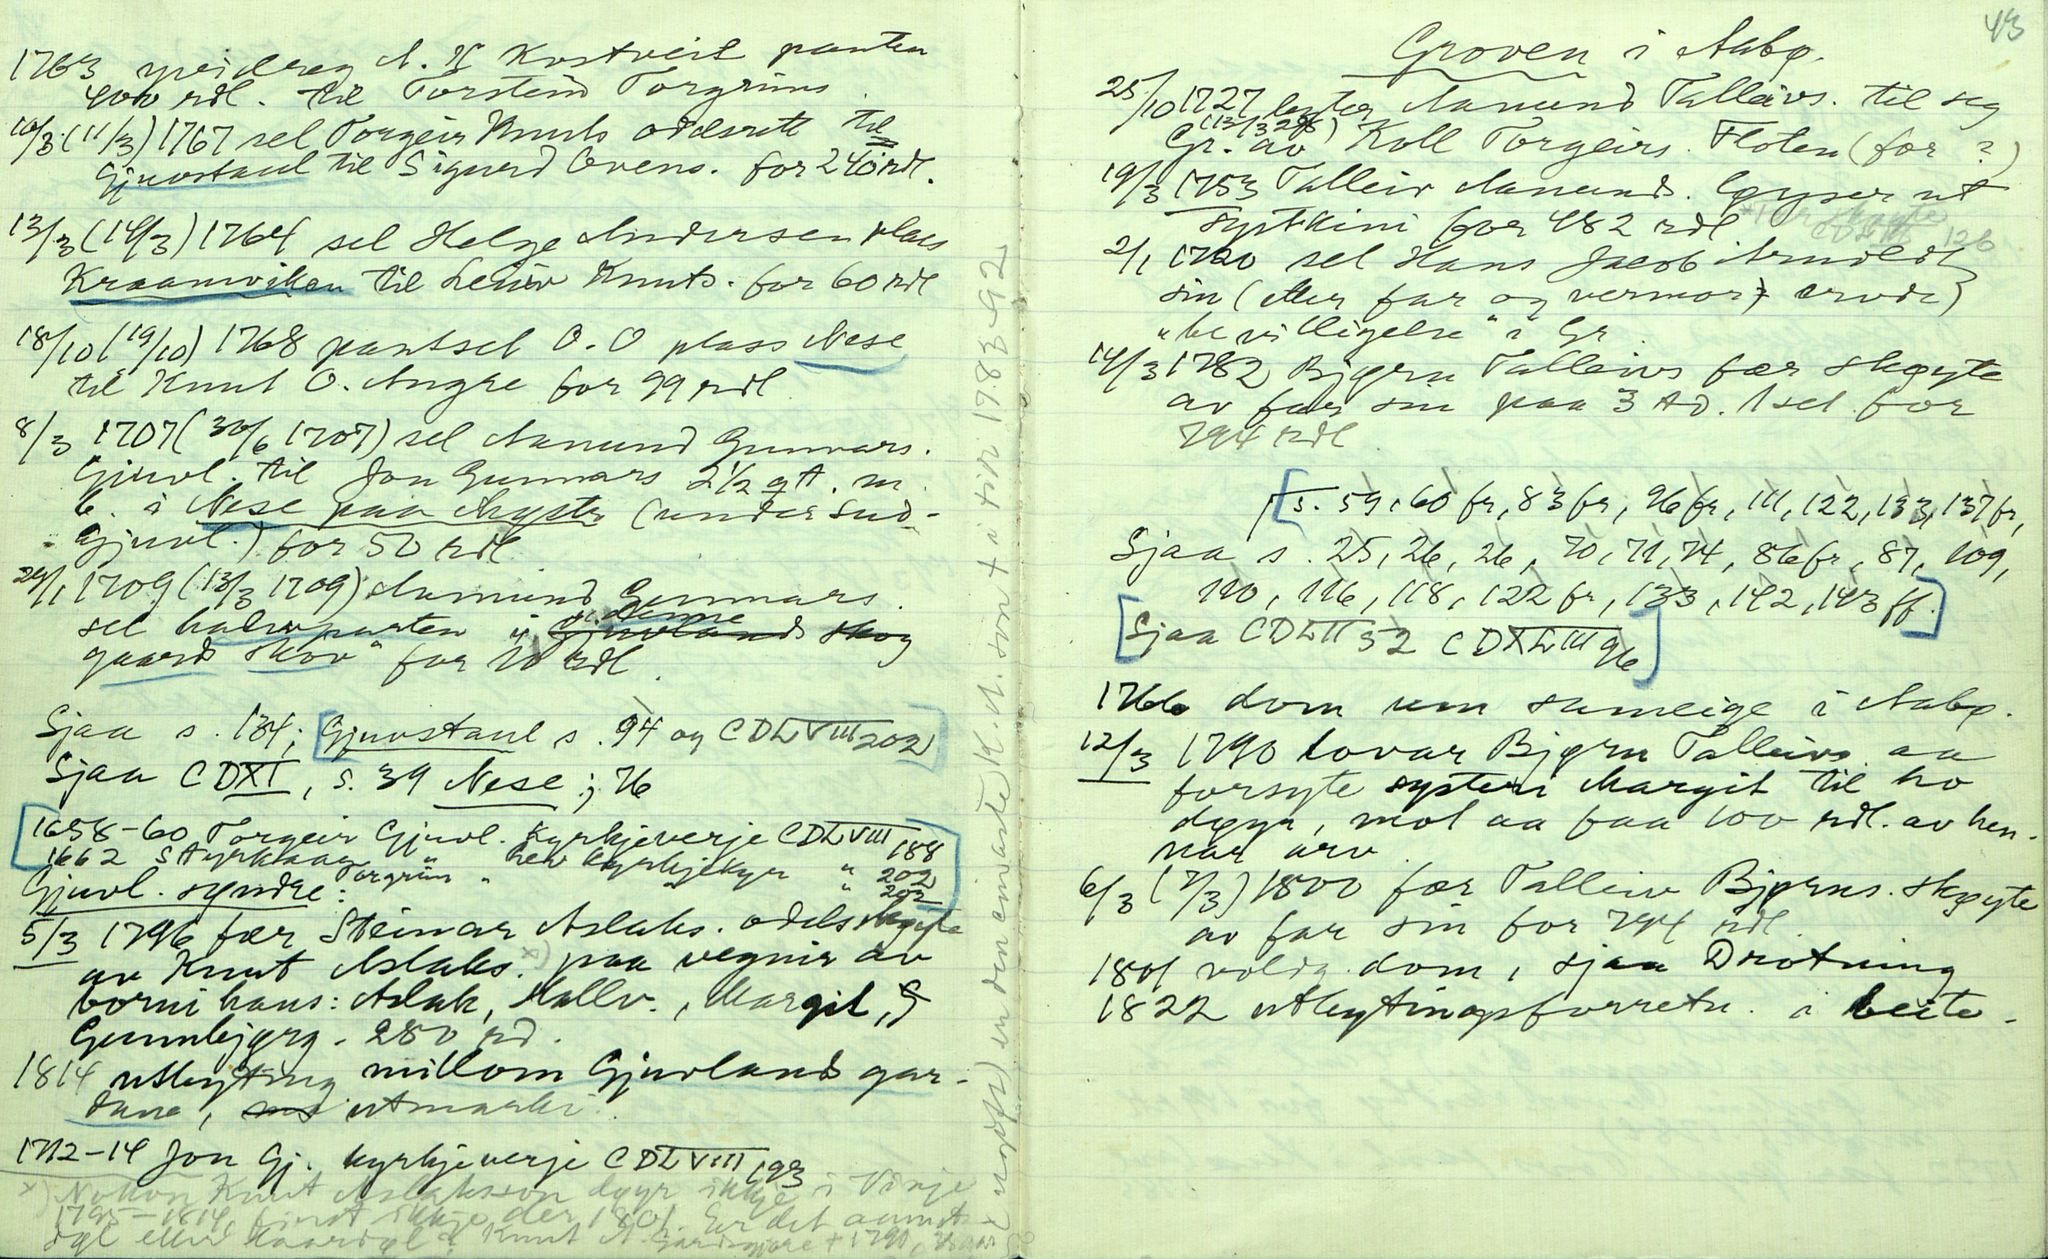 1763 yvidreg A. K Kostveit panten
400 rdl. til Torstein Torgrims.
10/3 (11/3) 1767 sel Torgeir Knuts odelsrett til
Gjuvstaul til Sigurd Ovens. for 240 rdl.
13/3 (14/3) 1764 sel Helge Andersen plass
Kraamviken til Leiv Knuts. for 60 rdl
18/10 (19/10) 1768 pantsel O. O plass Nese
til Knut O. Augre for 99 rdl
8/3 1707 (30/6 1707) sel Aamund Gunnars.
Gjuvl. til Jon Gunnars 2 1/2 qt. m.
b. i Nese paa Mystr (under Sud-
Gjuvl.) for 50 rdl
24/1 1709 (13/3 1709) Aamund Gunnars.
sel halvparten i denne skog
gaards skov" for 20 rdl.
Sjaa s. 134; [Gjuvstaul s. 94 og CDLVIII 202]
Sjaa CDXI, s. 39 Nese; 76
[1658-60 Torgeir Gjuvl. Kyrkjeverje CDLVIII 188
1662 Styrkaar " hev kyrkjekyr " 202
Torgrim " " " 202]
Gjuvl. syndre:
5/3 1796 fær Steinar Aslaks. odelsskøyte
av Knut Aslaks. x) paa vegnir av
borni hans: Aslak, Hallv., Margit, &
Gunnbjørg. 280 rd.
1814 utskyting millom Gjuvlands gar-
dane, utmarki.
1712-14 Jon Gj. kyrkjeverje CDLVIII 193
x) Nokon Knut Aslaksson døyr ikkje i Vinje
1795-1814, finst ikkje der 1801. Er det aamots
døl eller Knut A. † 1790,
en den einaste K. A. son † i tidi 1783-92
43
Groven i Aabø.
25/10 1727 løyser Aamund Talleivs. til seg
(13/3 28)
Gr. av Koll Torgeirs. Floten (for ?)
19/3 1753 Talleiv Aamunds. løyser ut
systkini for 482 rdl
126
2/1 1760 sel Hans Jacob Arnoldt
sin (etter far og vermor ervde)
"bevilligelse" i Gr.
14/3 1782 Bjørn Talleivs fær skøyte
av far sin paa 3 td. 1 set. for
794 rdl
[s. 59, 60 fr, 83 fr, 96 fr, 111, 122, 133, 137 fr,
Sjaa s. 25, 26, 26, 70, 71, 74, 86 fr, 87, 109,
110, 116, 118, 122 fr, 133, 142, 143 ff.]
[Sjaa CDLII 52 CDXLIII 96]
1766 dom um sameige i Aabø.
12/3 1790 lovar Bjørn Talleivs. aa
forsyte systeri Margit til ho
døyr, mot aa faa 100 rdl. av hen-
nar arv.
6/3 (7/3) 1800 fær Talleiv Bjørns. skøyte
av far sin for 794 rdl.
1801 voldg. dom, sjaa Drotning
1822 utskytingsforretn. i beite.